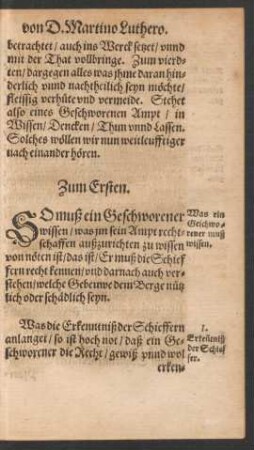 von D. Martino Luthero.
betrachtet / auch ins Werck setzet / vnnd
mit der That vollbringe. Zum vierd-
ten / dargegen alles was jhme daran hin-
derlich vnnd nachtheilich seyn möchte /
fleissig verhüte vnd vermeide. Stehet
also eines Geschworenen Ampt / in
Wissen / Dencken / Thun vnnd Lassen.
Solches wöllen wir nun weitleufftiger
nach einander hören.
Zum Ersten.
SO muß ein Geschworener
wissen / was jm sein Ampt recht-
schaffen außzurichten zu wissen
von nöten ist / das ist / Er muß die Schief-
fern recht kennen / vnd darnach auch ver-
stehen / welche Gebeuwe dem Berge nütz-
lich oder schädlich seyn.
Was ein
Geschwo-
rener muß
wissen.
Was die Erkenntniß der Schieffern
anlanget / so ist hoch not / daß ein Ge-
schworener die Recht / gewiß vnnd wol
erken-
1.
Erkentniß
der Schief-
fer.